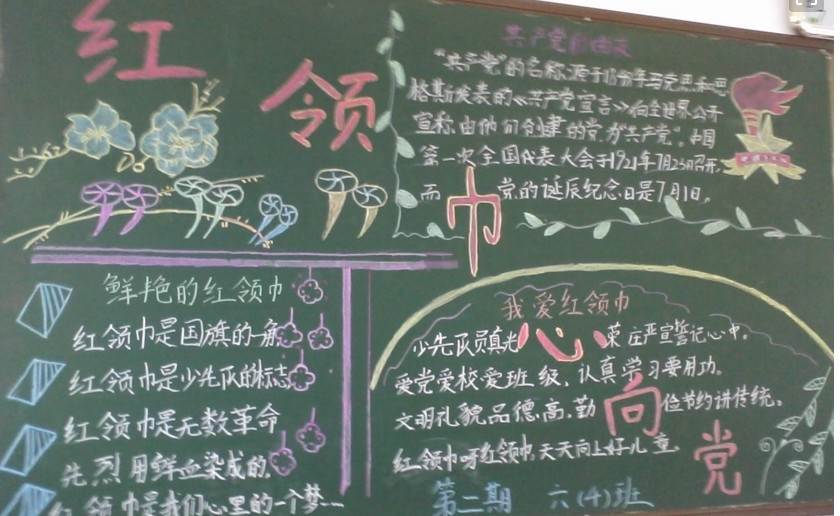 红
领
巾
心
向
党
共产党的由来
"共产党"的名称,源于1848年马克思和恩
格斯发表的《共产党宣言》向全世界公开
宣称,由他们创建的党为"共产党"。中国
第一次全国代表大会于1921年7月23日召开,
而 党的诞辰纪念日是7月1日。
鲜艳的红领巾
红领巾是国旗的一角
红领巾是少先队的标志
红领巾是无数革命
先烈用鲜血染成的,
红领巾是我们心里的一个梦...
我爱红领巾
少先队员真光 荣庄严宣誓记心中。
爱党爱校爱班级、认真学习要用功。
文明礼貌品德高,勤 俭节约讲传统。
红领巾呀红领巾,天天向上好儿童。
第二期 六(4)班